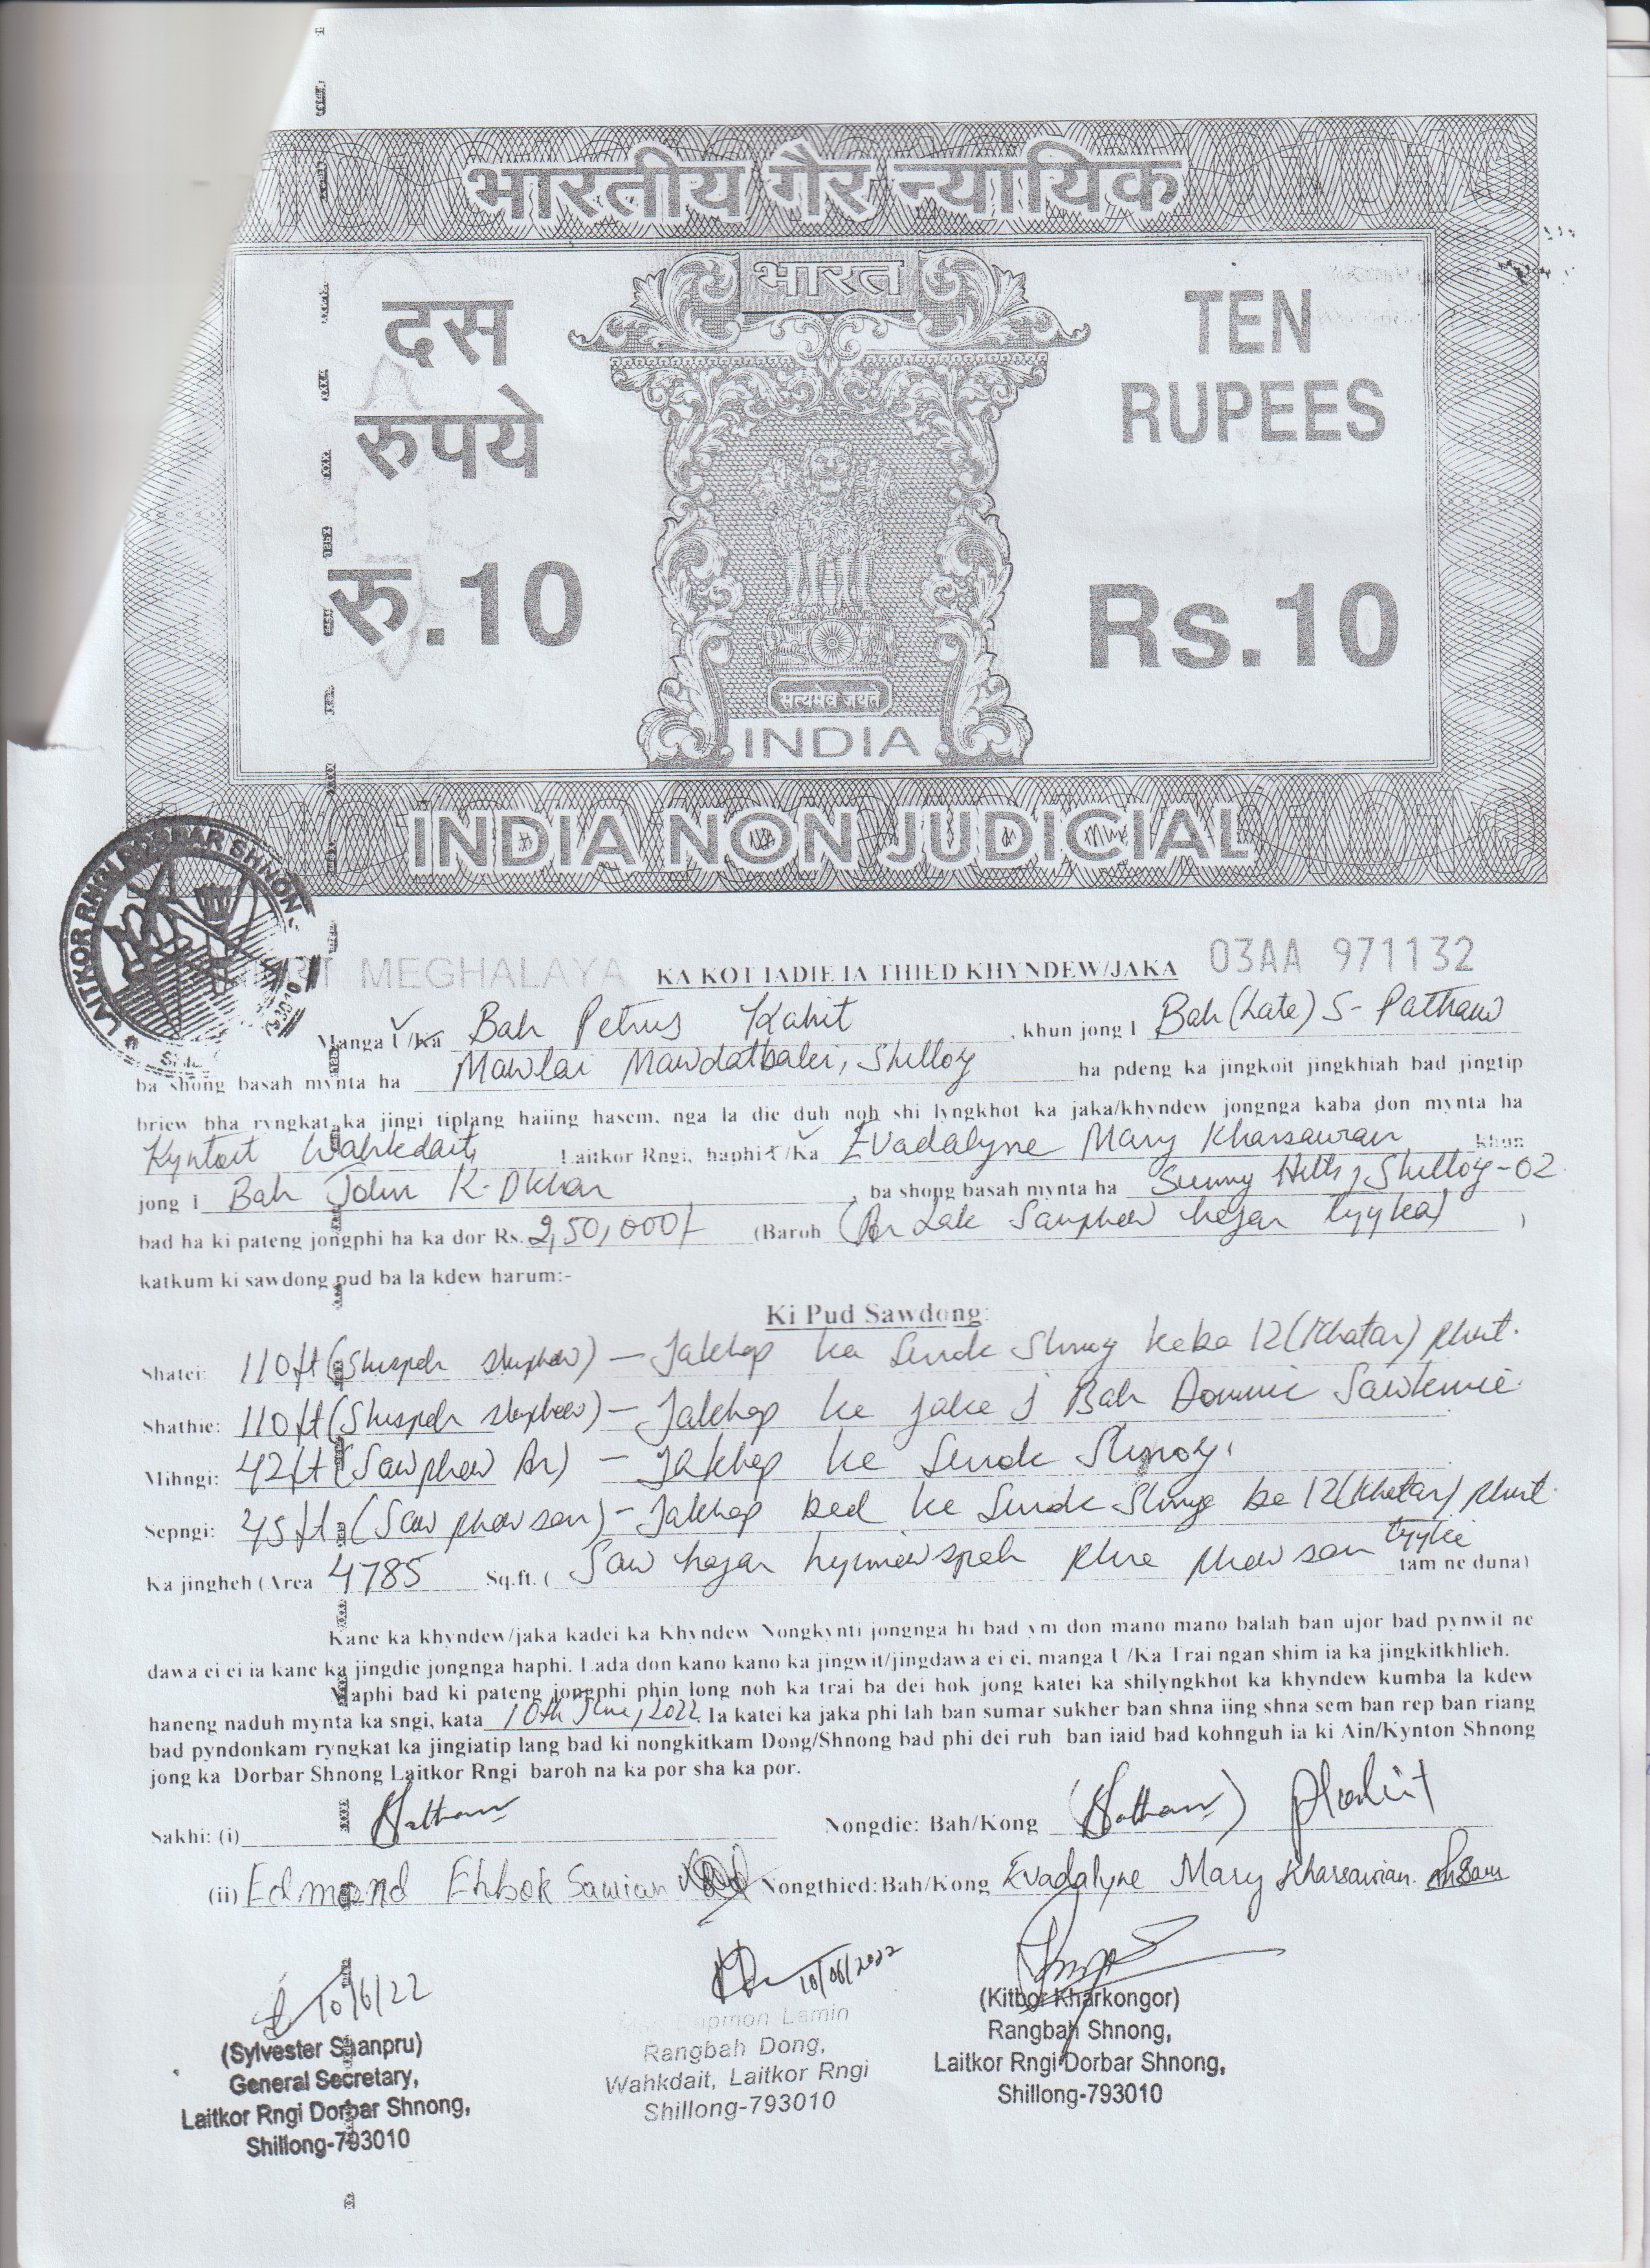 भारतीय गैर न्यायिक
भारत
दस
रुपये
रु.10
TEN
RUPEES
Rs.10
सत्यमेव जयते
INDIA
INDIA NON JUDICIAL
LAITKOR RNGI DORBAR SHNONG
MEGHALAYA
03AA 971132
KA KOT IADIE IA THIED KHYNDEW/JAKA
Manga U/Ka Bah Petrus Kahit, khun jong I Bah (Late) S- Pathaw
ba shong basah mynta ha Mawlai Mawdatbaki, Shillong ha pdeng ka jingkoit jingkhiah bad jingtip
briew bha ryngkat ka jingi tiplang haiing hasem, nga la die duh noh shi lyngkhot ka jaka/khyndew jongnga kaba don mynta ha
Kyntoit Wahkdait, Laitkor Rngi, haphi U/Ka Evadalyne Mary Kharsawian khun
jong i Bah John K. Dkhar, ba shong basah mynta ha Sunny Hills, Shillong-02
bad ha ki pateng jongphi ha ka dor Rs. 2,50,000/- (Baroh (Ar Lak Sanphew hajar tyngka)
katkum ki sawdong pud ba la kdew harum:-
Ki Pud Sawdong:
Shatei: 110ft (Shispah shiphew) – Jakhap ka Surok Shnong kaba 12 (Khatar) phut.
Shathie: 110ft (Shispah shiphew) – Jakhap ka jaka j Bah Dominic Sawkmie.
Mihngi: 42ft (Sawphew Ar) – Jakhap ka Surok Shnong.
Sepngi: 45ft. (Saw phew san) – Jakhap bad ka Surok Shnong ba 12 (Khatar) phut.
Ka jingheh (Area 4785 Sq.ft. ( Saw hajar hynniewspah phra phew san tam ne duna)
Kane ka khyndew/jaka kadei ka Khyndew Nongkynti jongnga hi bad ym don mano mano balah ban ujor bad pynwit ne
dawa ei ei ia kane ka jingdie jongnga haphi. Lada don kano kano ka jingwit/jingdawa ei ei, manga U/Ka Trai ngan shim ia ka jingkitkhlieh.
Maphi bad ki pateng jongphi phin long noh ka trai ba dei hok jong katei ka shilyngkhot ka khyndew kumba la kdew
haneng naduh mynta ka sngi, kata 10th June, 2022. Ia katei ka jaka phi lah ban sumar sukher ban shna iing shna sem ban rep ban riang
bad pyndonkam ryngkat ka jingiatip lang bad ki nongkitkam Dong/Shnong bad phi dei ruh ban iaid bad kohnguh ia ki Ain/Kynton Shnong
jong ka Dorbar Shnong Laitkor Rngi baroh na ka por sha ka por.
Sakhi: (i) Nongdie: Bah/Kong
(ii) Edmond Ehbok Sawian Nongthied: Bah/Kong Evadalyne Mary Kharsawian.
10/6/22
(Sylvester Shanpru)
General Secretary,
Laitkor Rngi Dorbar Shnong,
Shillong-793010
10/06/2022
Lamin
Rangbah Dong,
Wahkdait, Laitkor Rngi
Shillong-793010
(Kitbor Kharkongor)
Rangbah Shnong,
Laitkor Rngi Dorbar Shnong,
Shillong-793010